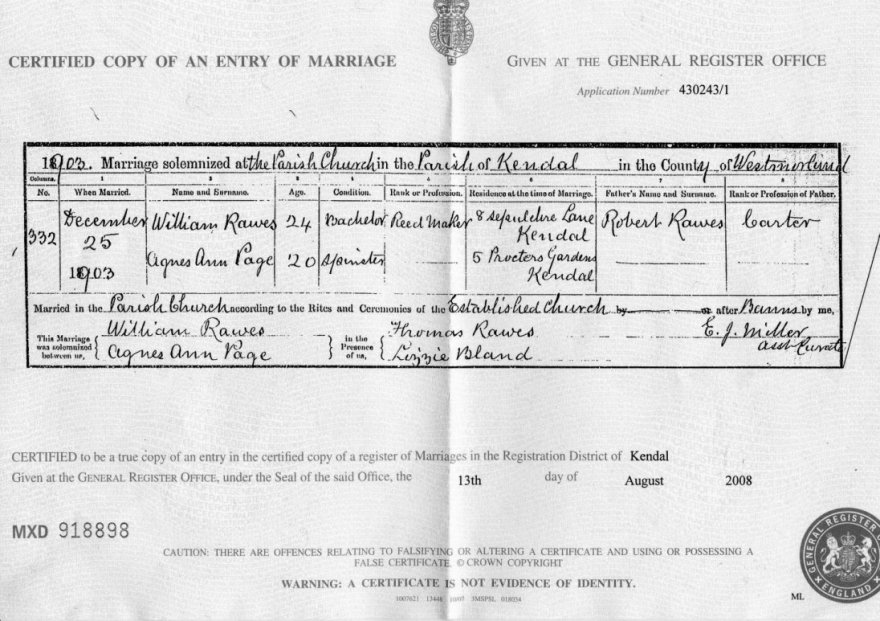 CERTIFIED COPY OF AN ENTRY OF MARRIAGE
GIVEN AT THE GENERAL REGISTER OFFICE
Application Number 430243/1
1903. Marriage solemnized at the Parish Church in the Parish of Kendal in the County of Westmorland
Columns. 1 2 3 4 5 6 7 8
No. When Married. Name and Surname. Age. Condition. Rank or Profession. Residence at the time of Marriage. Father's Name and Surname. Rank or Profession of Father.
332 December 25 1903 William Rawes 24 Bachelor Reed Maker 8 Sepulchre Lane Kendal Robert Rawes Carter
Agnes Ann Page 20 Spinster 5 Procters Gardens Kendal
Married in the Parish Church according to the Rites and Ceremonies of the Established Church by or after Banns by me,
This Marriage was solemnized between us, William Rawes Agnes Ann Page in the Presence of us, Thomas Rawes Lizzie Bland E. J. Miller asst Curate
CERTIFIED to be a true copy of an entry in the certified copy of a register of Marriages in the Registration District of Kendal
Given at the GENERAL REGISTER OFFICE, under the Seal of the said Office, the 13th day of August 2008
MXD 918898
CAUTION: THERE ARE OFFENCES RELATING TO FALSIFYING OR ALTERING A CERTIFICATE AND USING OR POSSESSING A
FALSE CERTIFICATE. © CROWN COPYRIGHT
WARNING: A CERTIFICATE IS NOT EVIDENCE OF IDENTITY.
GENERAL REGISTER ENGLAND
ML